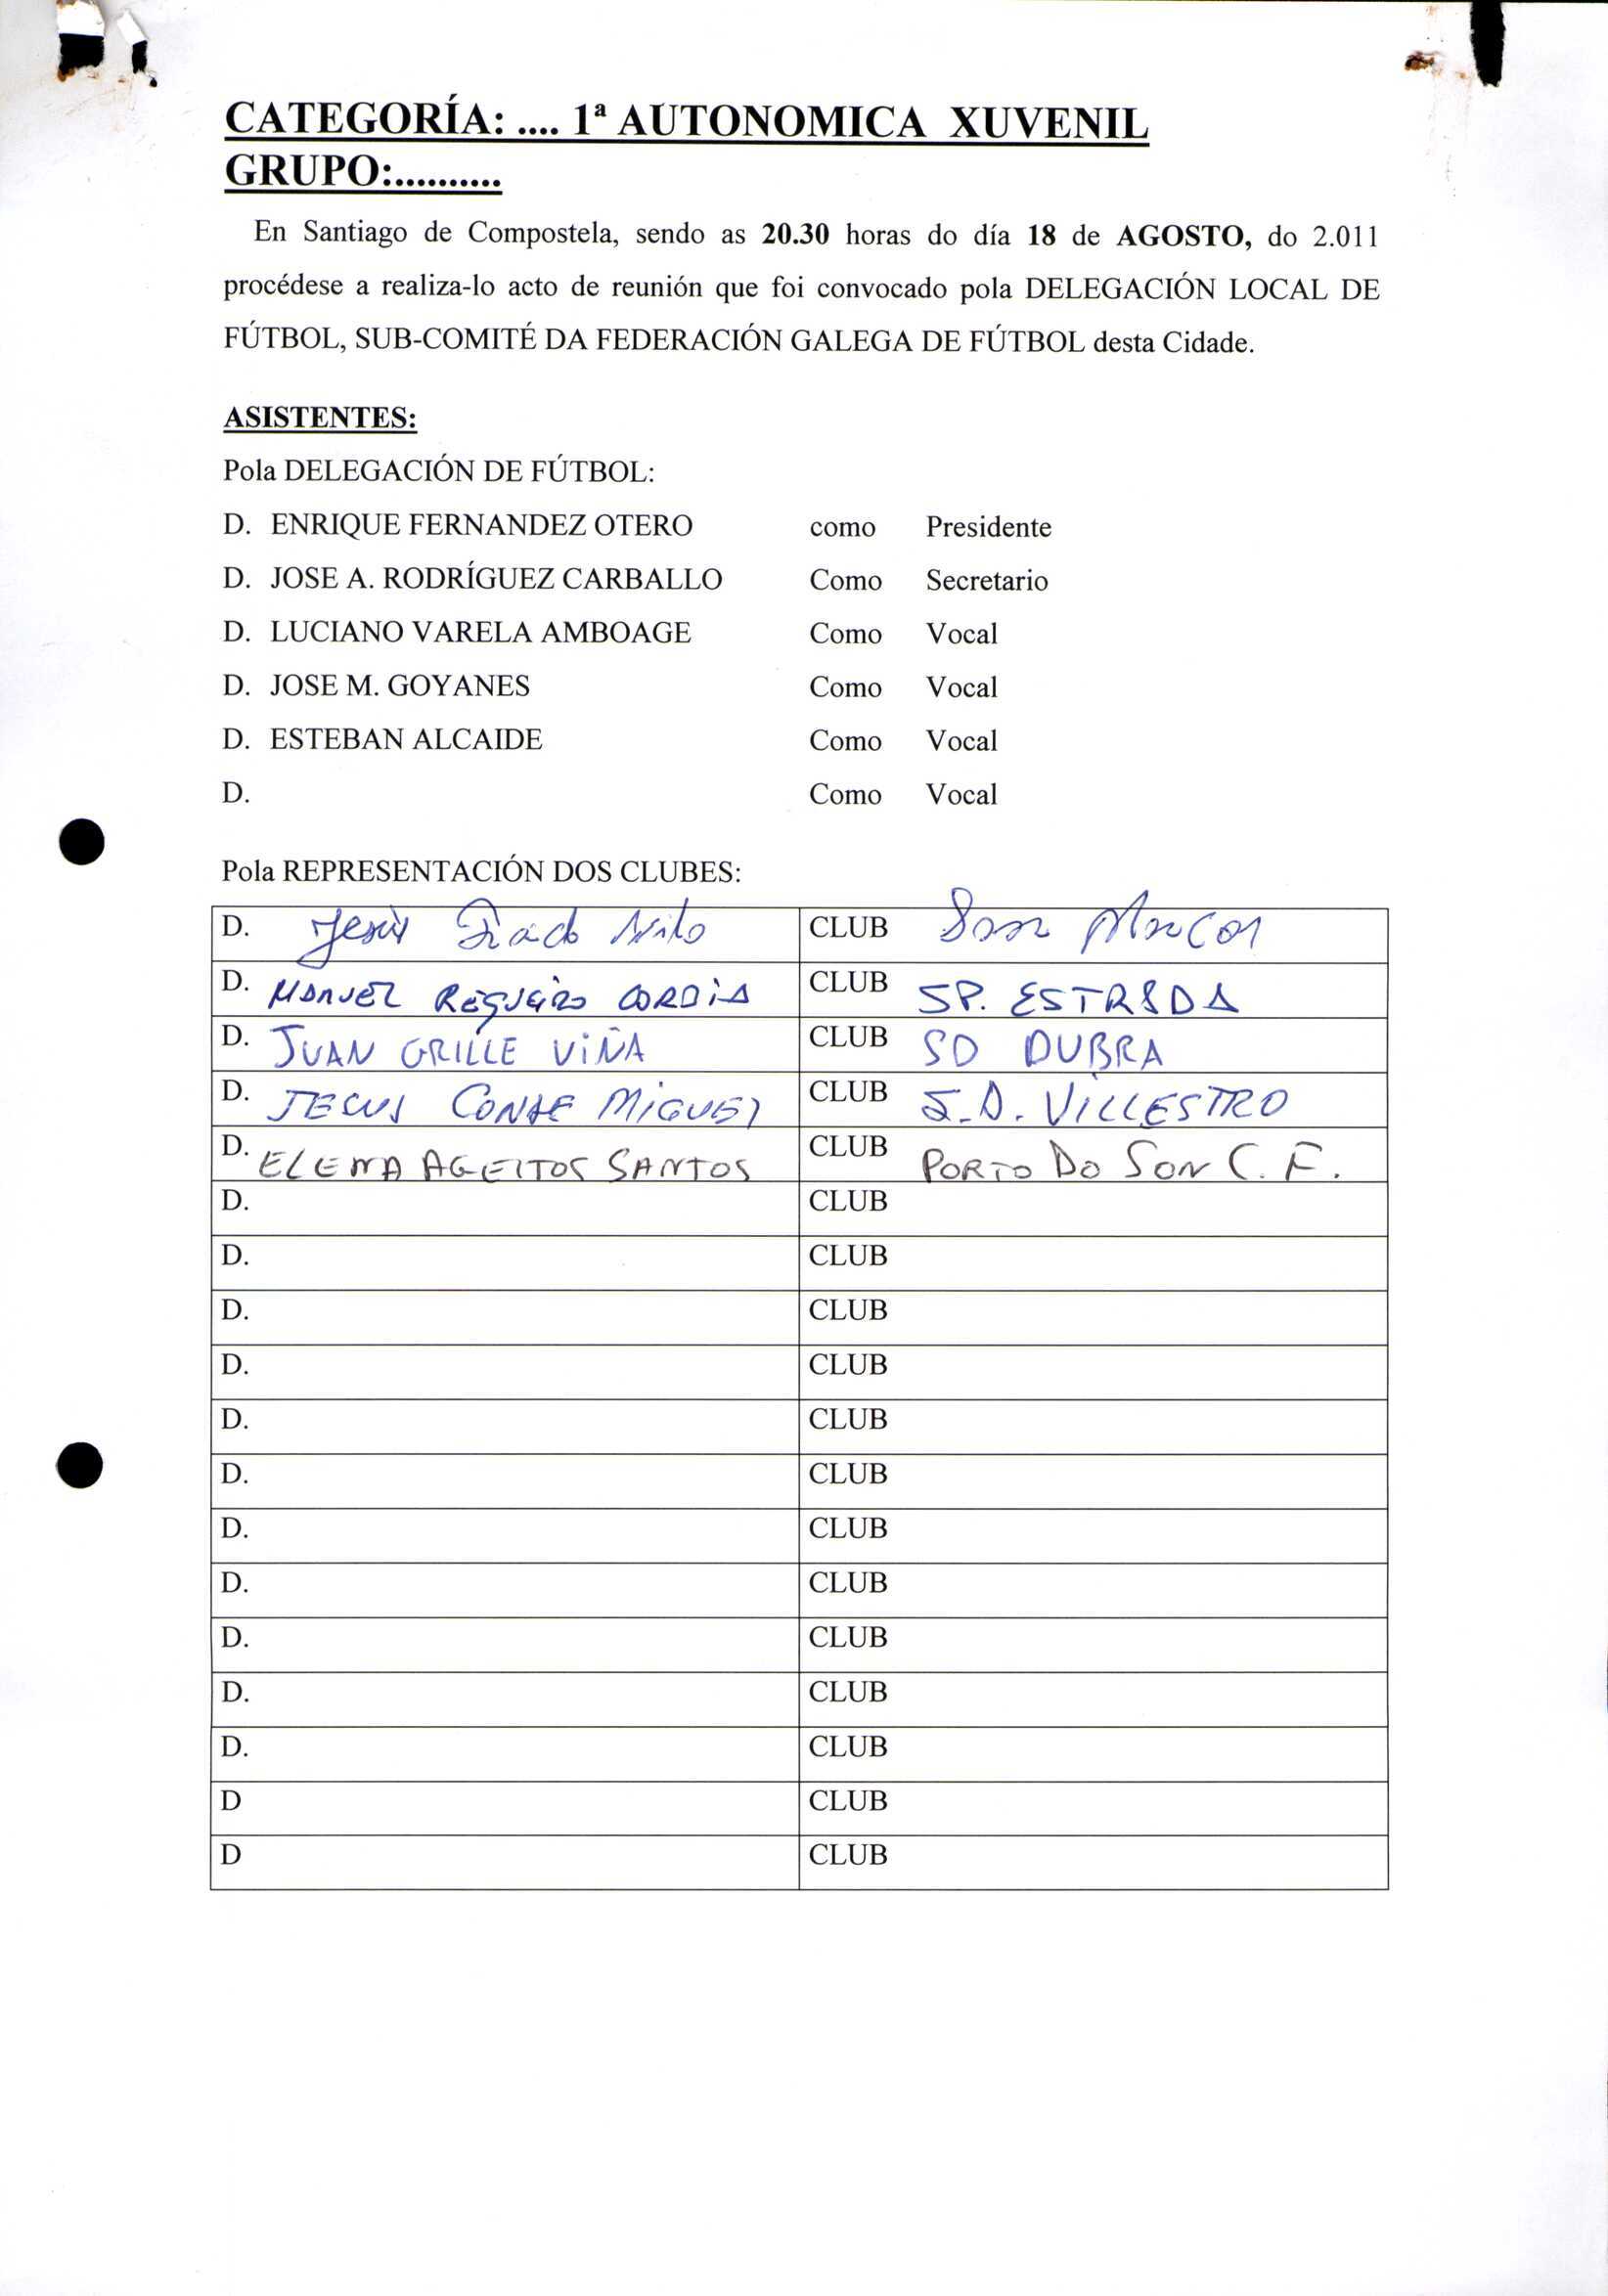 CATEGORÍA: .... 1ª AUTONOMICA XUVENIL
GRUPO:..........
En Santiago de Compostela, sendo as 20.30 horas do día 18 de AGOSTO, do 2.011
procédese a realiza-lo acto de reunión que foi convocado pola DELEGACIÓN LOCAL DE
FÚTBOL, SUB-COMITÉ DA FEDERACIÓN GALEGA DE FÚTBOL desta Cidade.
ASISTENTES:
Pola DELEGACIÓN DE FÚTBOL:
D. ENRIQUE FERNANDEZ OTERO como Presidente
D. JOSE A. RODRÍGUEZ CARBALLO Como Secretario
D. LUCIANO VARELA AMBOAGE Como Vocal
D. JOSE M. GOYANES Como Vocal
D. ESTEBAN ALCAIDE Como Vocal
D. Como Vocal
Pola REPRESENTACIÓN DOS CLUBES:
D. Jesús CLUB San Marcos
D. MANUEL REGUEIRO CLUB SP. ESTRADA
D. JUAN GRILLE VIÑA CLUB SD DUBRA
D. JESUS CONDE MIGUEZ CLUB S.D. VILLESTRO
D. ELENA AGEITOS SANTOS CLUB PORTO DO SON C.F.
D. CLUB
D. CLUB
D. CLUB
D. CLUB
D. CLUB
D. CLUB
D. CLUB
D. CLUB
D. CLUB
D. CLUB
D. CLUB
D CLUB
D CLUB